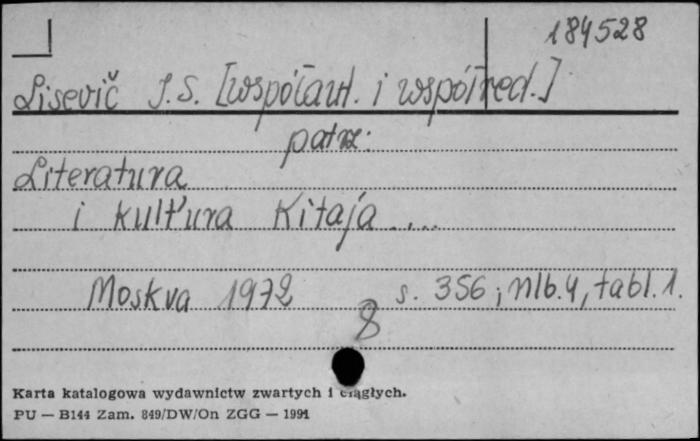 184528
Lisevič I.S. [współaut. i współred.]
patrz:
Literatura
i kul't'ura Kitaja ....
Moskva 1972 s. 356, nlb. 4, tabl. 1.
8
Karta katalogowa wydawnictw zwartych i ciągłych.
PU — B144 Zam. 849/DW/On ZGG — 1991